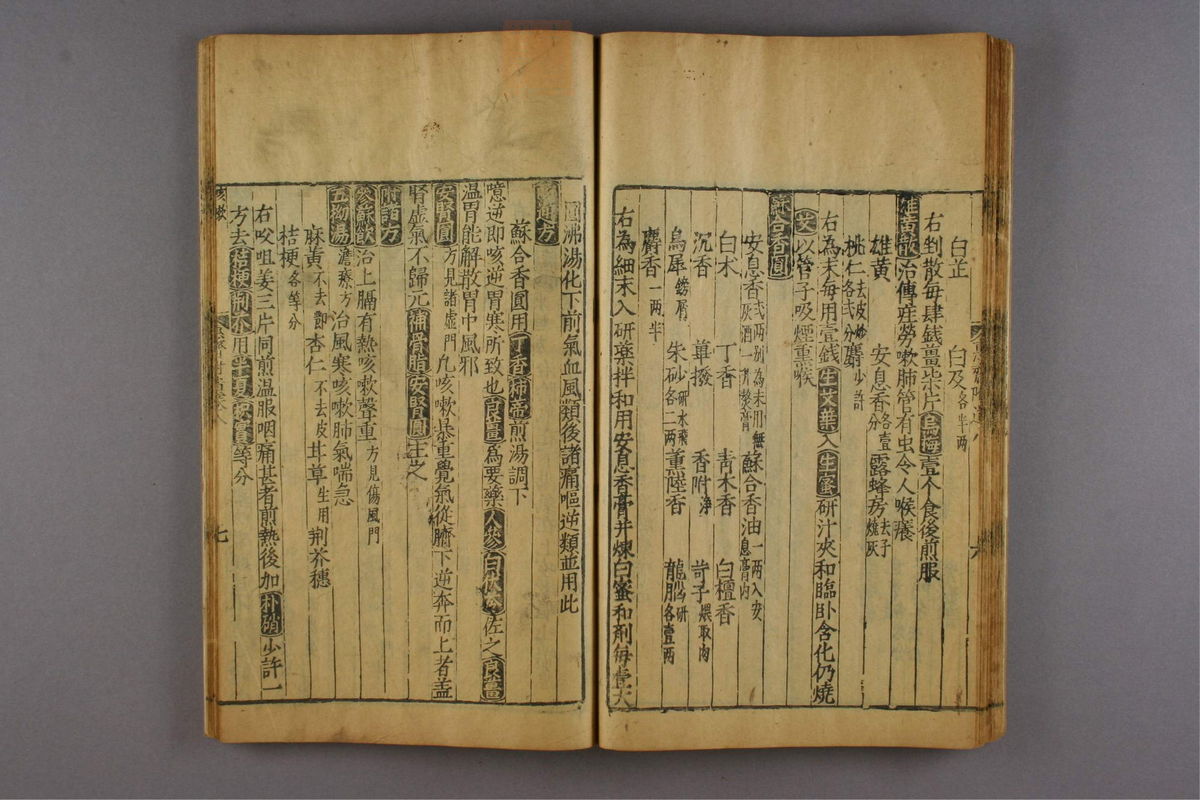 白芷　白及各半兩
右剉散每肆錢薑柒片烏梅壹个食後煎服
雄黃散治傳疰勞嗽肺管有虫令人喉癢
雄黃　安息香各壹分　露蜂房去子燒灰
桃仁去皮炒各弍分　麝少許
右為末每用壹錢生艾葉入生蜜研汁夾和臨臥含化仍燒
艾以管子吸煙熏喉
蘇合香圓
安息香弍兩別為末用無灰酒一升熬膏　蘇合香油一兩入安息膏內
白朮　丁香　青木香　白檀香
沉香　蓽撥　香附淨　訶子煨取肉
烏犀鎊屑　朱砂研水飛各二兩　薰陸香　龍腦研各壹兩
麝香一兩半
右為細末入研藥拌和用安息香膏并煉白蜜和劑每壹大
圓沸湯化下前氣血風類後諸痛嘔逆類並用此
通方
蘇合香圓用丁香柿蒂煎湯調下
噫逆即咳逆胃寒所致也良薑為要藥人參白茯苓佐之良薑
溫胃能解散胃中風邪
安腎圓方見諸虛門　凡咳嗽暴重覺氣從臍下逆奔而上者盖
腎虛氣不歸元補骨脂安腎圓主之
附諸方
參蘇飲治上膈有熱咳嗽聲重方見傷風門
五拗湯澹寮方治風寒咳嗽肺氣喘急
麻黃不去節　杏仁不去皮　甘草生用　荊芥穗
桔梗各等分
右㕮咀姜三片同煎溫服咽痛甚者煎熱後加朴硝少許一
方去桔梗荊芥用半夏枳實等分
咳嗽
七